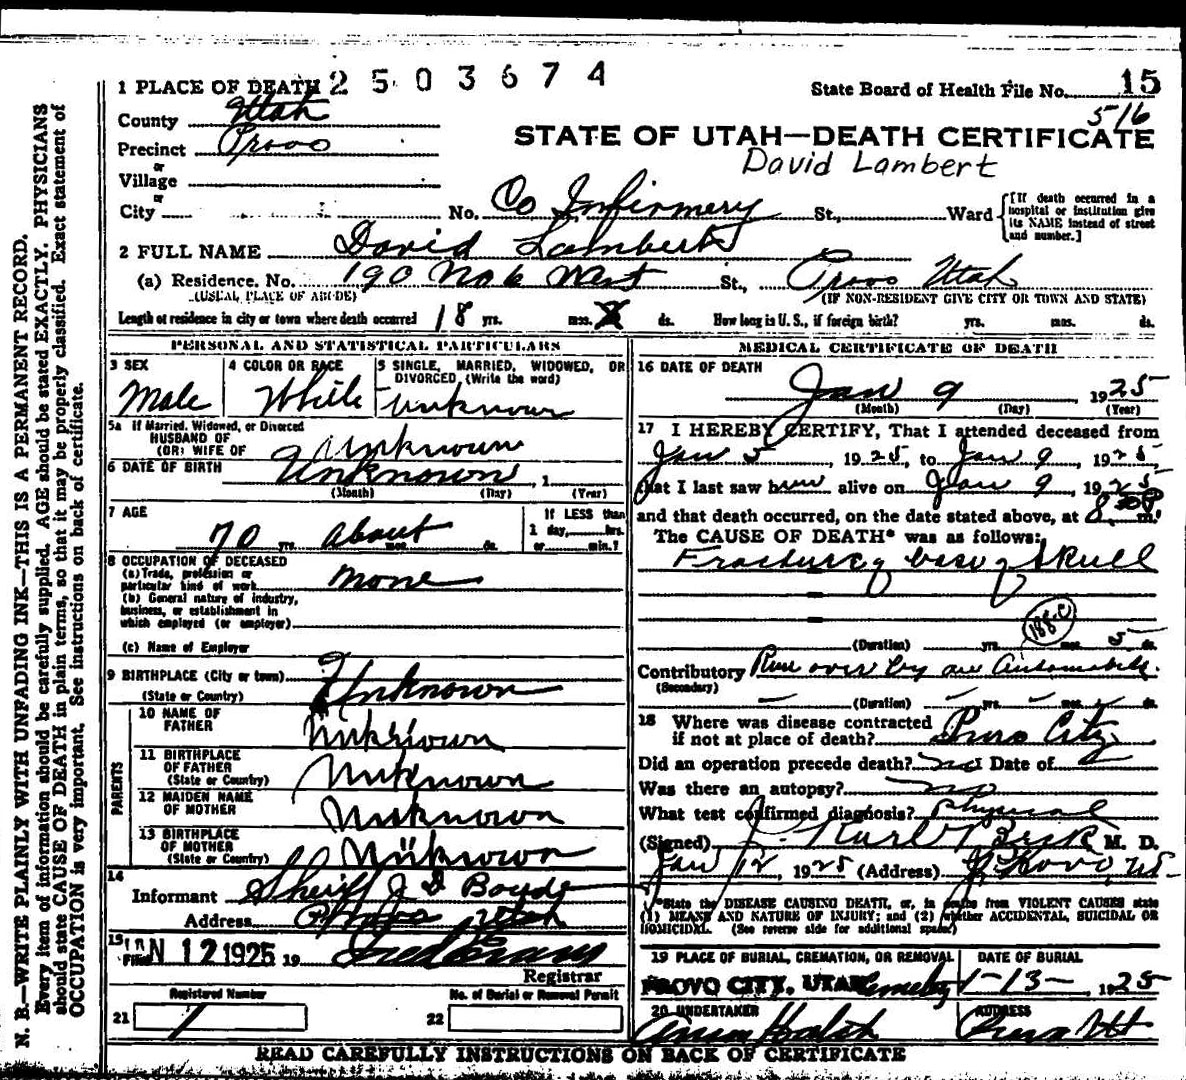 N. B.—WRITE PLAINLY WITH UNFADING INK—THIS IS A PERMANENT RECORD.
Every item of information should be carefully supplied. AGE should be stated EXACTLY. PHYSICIANS
should state CAUSE OF DEATH in plain terms, so that it may be properly classified. Exact statement of
OCCUPATION is very important. See instructions on back of certificate.
1 PLACE OF DEATH 2503674
State Board of Health File No. 15
516
County Utah
STATE OF UTAH—DEATH CERTIFICATE
Precinct Provo
David Lambert
or
Village
or
City No. Co Infirmery St., Ward
[If death occurred in a hospital or institution give its NAME instead of street and number.]
2 FULL NAME David Lambert
(a) Residence. No. 190 No 6 West St., Provo Utah
(USUAL PLACE OF ABODE) (IF NON-RESIDENT GIVE CITY OR TOWN AND STATE)
Length of residence in city or town where death occurred 18 yrs. mos. ds. How long in U. S., if foreign birth? yrs. mos. ds.
PERSONAL AND STATISTICAL PARTICULARS
3 SEX
Male
4 COLOR OR RACE
White
5 SINGLE, MARRIED, WIDOWED, OR DIVORCED, (Write the word)
Unknown
5a If Married, Widowed, or Divorced
HUSBAND OF
(OR) WIFE OF Unknown
6 DATE OF BIRTH Unknown, 1
(Month) (Day) (Year)
7 AGE
70 yrs. about mos. ds.
If LESS than
1 day, hrs.
or min.?
8 OCCUPATION OF DECEASED
(a) Trade, profession or
particular kind of work None
(b) General nature of industry,
business, or establishment in
which employed (or employer)
(c) Name of Employer
9 BIRTHPLACE (City or town)
(State or Country) Unknown
PARENTS
10 NAME OF
FATHER Unknown
11 BIRTHPLACE
OF FATHER
(State or Country) Unknown
12 MAIDEN NAME
OF MOTHER Unknown
13 BIRTHPLACE
OF MOTHER
(State or Country) Unknown
14
Informant Sheriff J D Boyd
Address Provo Utah
15
Filed JAN 12 1925 19
Registrar
Registered Number
No. of Burial or Removal Permit
21 1
22
MEDICAL CERTIFICATE OF DEATH
16 DATE OF DEATH
Jan 9 1925
(Month) (Day) (Year)
17 I HEREBY CERTIFY, That I attended deceased from
Jan 5, 1925, to Jan 9, 1925
that I last saw him alive on Jan 9, 1925
and that death occurred, on the date stated above, at 8 30 P m.
The CAUSE OF DEATH* was as follows:
Fracture of base of skull
188-C
(Duration) yrs. mos. 5 ds.
Contributory Run over by an Automobile.
(Secondary)
(Duration) yrs. mos. ds.
18 Where was disease contracted
if not at place of death? Provo City
Did an operation precede death? no Date of
Was there an autopsy? no
What test confirmed diagnosis? Physical
(Signed) J. Karl Beck M. D.
Jan 12, 1925 (Address) Provo, Ut.
*State the DISEASE CAUSING DEATH, or, in deaths from VIOLENT CAUSES state
(1) MEANS AND NATURE OF INJURY; and (2) whether ACCIDENTAL, SUICIDAL OR
HOMICIDAL. (See reverse side for additional space)
19 PLACE OF BURIAL, CREMATION, OR REMOVAL
PROVO CITY, UTAH Cemetery
DATE OF BURIAL
1-13-, 1925
20 UNDERTAKER
ADDRESS
Provo Ut
READ CAREFULLY INSTRUCTIONS ON BACK OF CERTIFICATE